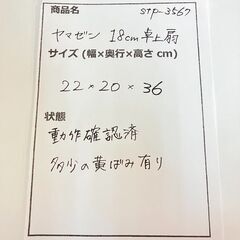 商品名 stp-3567
ヤマゼン 18cm卓上扇
サイズ (幅×奥行×高さ cm)
22×20×36
状態
動作確認済
多少の黄ばみ有り